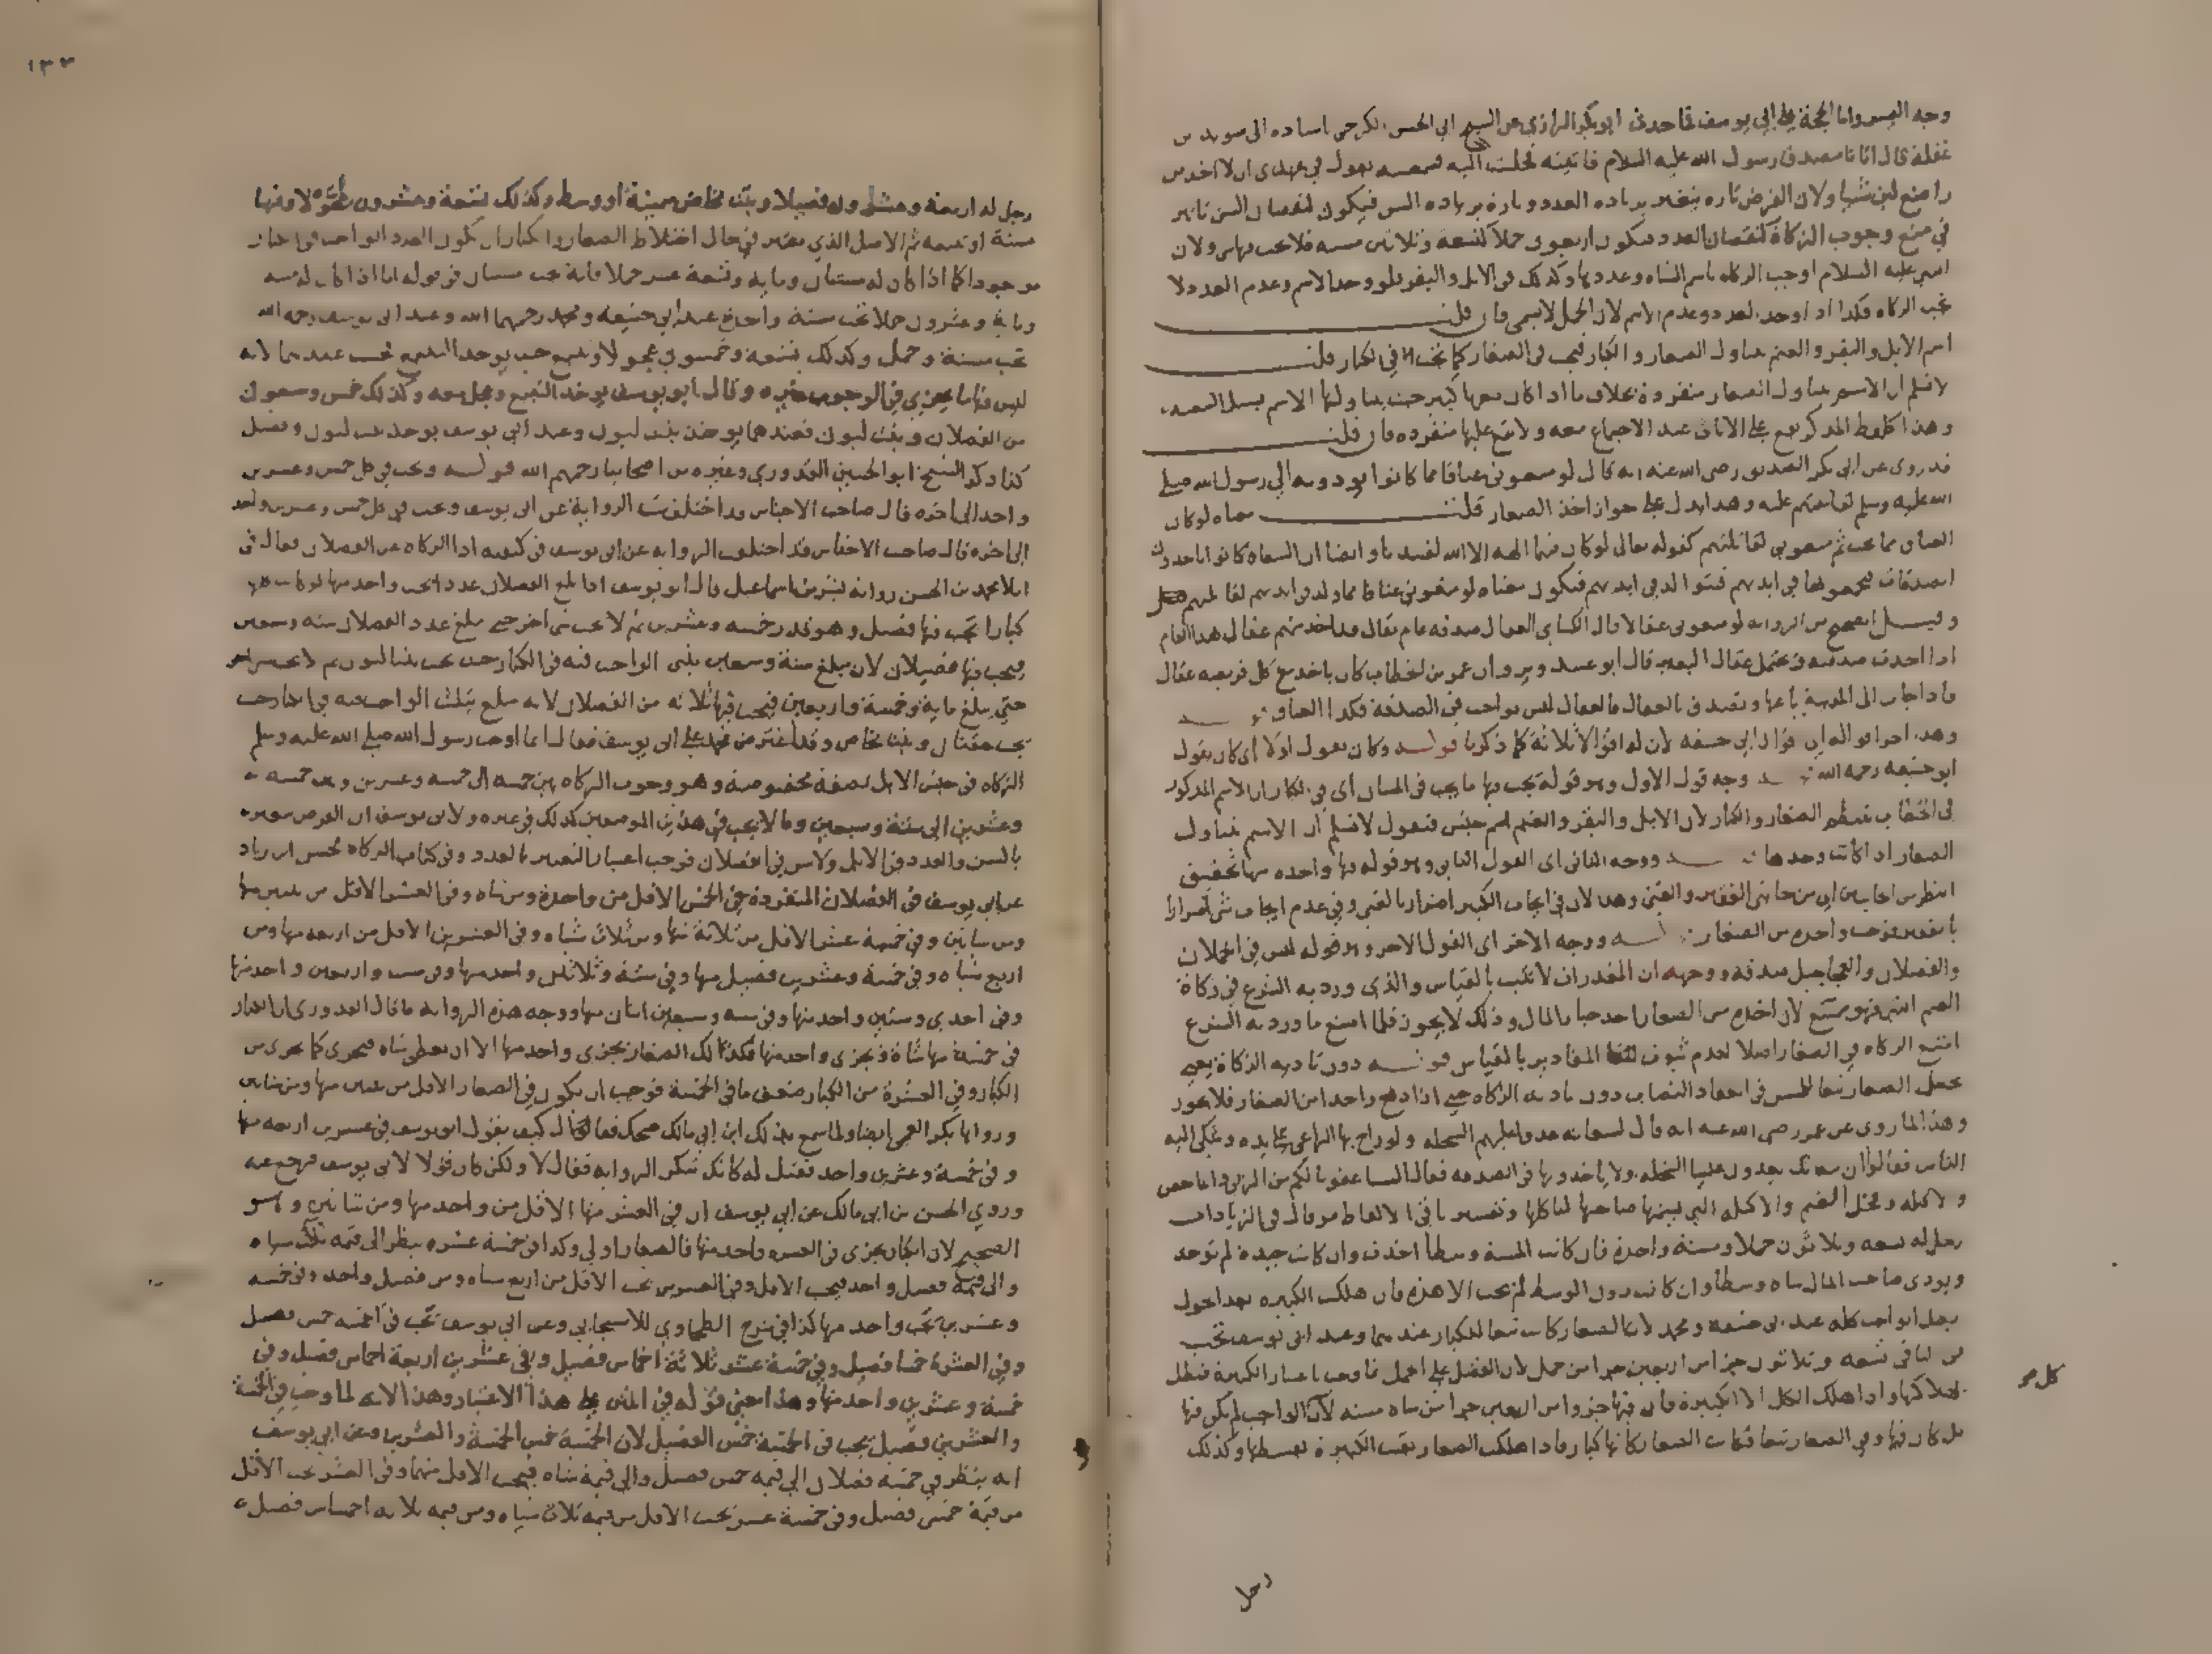 وجه اليسر واما الحجة على ابي يوسف فما حدث ابو بكر الرازي عن الشيخ ابي الحسن الكرخي اسناده الى سويد بن
غفلة قال اتانا مصدق رسول الله عليه السلام فاتيته فجلست اليه فسمعته يقول في عهدي ان لا اخذ من
راضع لبن شيا ولان الفرض تاره يتغير بزياده العدد وتارة بزياده السن فيكون لنقصان السن تاثير
في منع وجوب الزكاة كنقصان العدد فيكون اربعون حملا كتسعة وثلاثين مسنه فلا يجب فيها شي ولان
النبي عليه السلام اوجب الزكاه باسم الشاه وعددها وكذلك في الابل والبقر فلو وجد الاسم وعدم العدد لا
تجب الزكاه فكذا اذا وجد العدد وعدم الاسم لان الحمل لا يسمى فان قلت
اسم الابل والبقر والغنم يتناول الصغار والكبار فيجب في الصغار كما تجب في الكبار قلت
لا نسلم ان الاسم يتناول الصغار منفردة بخلاف ما اذا كان معها كبير حيث يتناولها الاسم
وهذا كلفظ المذكر يقع على الاناث عند الاجتماع معه ولا يقع عليها منفرده فان قلت
قد روي عن ابي بكر الصديق رضي الله عنه انه قال لو منعوني عناقا مما كانوا يودونه الى رسول الله صلى
الله عليه وسلم لقاتلتهم عليه وهذا يدل على جواز اخذ الصغار قلت معناه لو كان
العناق مما يجب ثم منعوني لقاتلتهم كقوله تعالى لو كان فيهما الهة الا الله لفسدتا وايضا ان السعاه كانوا ياخذون
الصدقات فيجمعونها في ايديهم فتتوالد في ايديهم فيكون معناه لو منعوني عناقا مما ولد في ايديهم لقاتلتهم
وقيل الصحيح من الرواية لو منعوني عقالا قال الكسائي العقال صدقه عام يقال قد اخذ منهم عقال هذا العام
اذا اخذت صدقته وقيل عقال البعير قال ابو عبيد ويروى ان عمر بن الخطاب كان ياخذ مع كل فريضه عقالا
فاذا جات الى المدينة باعها وتصدق بالعقال والعقال ليس بواجب في الصدقة فكذا العناق
وهذا اخر اقواله اي اقوال ابي حنيفه لان له اقوالا ثلاثة كما ذكرنا قوله وكان يقول اولا اي كان يقول
ابو حنيفه رحمه الله وجه قول الاول وهو قوله يجب فيها ما يجب في المسان اي في الكبار ان الاسم المذكور
في الخطاب ينتظم الصغار والكبار لان الابل والبقر والغنم اسم جنس فنقول لا نسلم ان الاسم يتناول
الصغار اذا كانت وحدها ووجه الثاني اى القول الثاني وهو قوله فيها واحده منها تحقيق
النظر من الجانبين اي من جانبي الفقير والغني وهذا لان في ايجاب الكبير اضرارا بالغني وفي عدم ايجاب شي اضرارا
بالفقير فوجب واحدة من الصغار ووجه الاخر اى القول الاخر وهو قوله ليس في الحملان
والفصلان والعجاجيل صدقه ووجهه ان المقدران لا تثبت بالقياس والذي ورد به الشرع في زكاة
الغنم السن فهو ممتنع لان اخذه من الصغار اخذ جبا المال وذلك لا يجوز فلما امتنع ما ورد به الشرع
امتنع الزكاه في الصغار اصلا لعدم ثبوت المقادير بالقياس قوله دون تادية الزكاة يعني
يجعل الصغار تبعا للمسن في انعقاد النصاب دون تاديه الزكاه حتى اذا دفع واحدا من الصغار فلا يجوز
وهذا لما روى عن عمر رضي الله عنه انه قال لسعاته عدوا عليهم السخله ولو راح بها الراعي على يده وشكى اليه
الناس فقالوا ان سعاتك يعدون علينا السخله ولا ياخذونها في الصدقه فقال السنا عفونا لكم عن الربى والماخض
والاكيله وفحل الغنم والاكيله التي يسمنها صاحبها لياكلها وتفسير باقي الالفاظ مر وقال في الزيادات
رجل له تسعه وثلاثون حملا ومسنة واحدة فان كانت المسنة وسطا اخذت وان كانت جيدة لم توخذ
ويودي صاحب المال شاه وسطا وان كانت دون الوسط لم تجب الا هذه فان هلكت الكبيره بعد الحول
بطل الواجب كله عند ابي حنيفه ومحمد لان الصغار كانت تبعا للكبار عندهما وعند ابي يوسف تجب
في الباقي تسعه وثلاثون جزا من اربعين جزا من حمل لان الفضل على الحمل انما وجب باعتبار الكبيرة فبطل
بهلاكها واذا هلك الكل الا الكبيرة فان فيها جزوا من اربعين جزا من شاه مسنه لان الواجب لم يكن فيها
بل كان فيها وفي الصغار تبعا فكانت الصغار كانها كبار فاذا هلكت الصغار بقيت الكبيرة بقسطها وكذلك
كل
رجل
١٣٣
رجل له اربعة وعشرون فصيلا وبنت مخاض سمينة او وسط وكذلك تسعة وعشرون عجولا وفيها
مسنة او تبيعه ثم الاصل الذي يعتبر في حال اختلاط الصغار والكبار ان يكون العدد الواجب في الكبار
موجودا كما اذا كان له مسنتان وماية وتسعة عشر حملا فانه يجب مسنتان في قوله اما اذا كان له مسنه
وماية وعشرون حملا تجب مسنة واحدة عند ابي حنيفه ومحمد رحمهما الله وعند ابي يوسف رحمه الله
تجب مسنة وحمل وكذلك تسعه وخمسون عجولا وتبيع حيث يوخذ التبيع فحسب عندهما لانه
ليس فيها ما يجزي في الوجوب غيره وقال ابو يوسف يوخذ التبيع وعجل معه وكذلك خمس وسبعون
من الفصلان وبنت لبون فعندهما يوخذ بنت لبون وعند ابي يوسف يوخذ بنت لبون وفصيل
كذا ذكر الشيخ ابو الحسين القدوري وغيره من اصحابنا رحمهم الله قوله ويجب في كل خمس وعشرين
واحد الى اخره قال صاحب الاجناس قد اختلفت الرواية عن ابي يوسف ويجب في كل خمس وعشرين واحد
الى اخره قال صاحب الاجناس قد اختلفت الروايه عن ابي يوسف في كيفيه اداء الزكاه عن الفصلان فقال في
املا محمد بن الحسن روايه بشر بن اسماعيل قال ابو يوسف اذا بلغ الفصلان عددا تجب واحد منها لو كانت
كبارا تجب فيها فصيل وهو قدر خمسه وعشرين ثم لا يجب شي اخر حتى يبلغ عدد الفصلان سته وسبعين
فيجب فيها فصيلان لان مبلغ ستة وسبعين يثنى الواجب فيه في الكبار حيث يجب بنتا لبون ثم لا يجب شي اخر
حتى يبلغ ماية وخمسة واربعين فيجب فيها ثلاثه من الفصلان لانه مبلغ يثلث الواجب فيه في الكبار حيث
يجب حقتان وبنت مخاض وقد اعترض محمد على ابي يوسف فقال انما اوجب رسول الله صلى الله عليه وسلم
الزكاه في جنس الابل بصفة مخصوصة وهو وجوب الزكاه بين خمسه الى خمسه وعشرين وبين خمسه
وعشرين الى ستة وسبعين وما لا يجب في هذين الموضعين كذلك في غيره ولابي يوسف ان الفرض يتغير
بالسن والعدد في الابل ولا سن في الفصلان فوجب اعتبار التغيير بالعدد وفي كتاب الزكاه لحسن ابن زياد
عن ابي يوسف في الفصلان المنفردة في الخمس الاقل من واحدة ومن شاه وفي العشر الاقل من ثنتين منها
ومن شاتين وفي خمسة عشر الاقل من ثلاثة منها ومن ثلاث شياه وفي العشرين الاقل من اربعه منها ومن
اربع شياه وفي خمسة وعشرين فصيل منها وفي ستة وثلاثين واحد منها وفي ست واربعين واحد منها
وفي احدى وستين واحد منها وفي سته وسبعين اثنان منها ووجه هذه الروايه ما قال القدوري ان الكبار
في خمسة منها شاة ويجزي واحد منها فكذلك الصغار يجزى واحد منها الا ان يعطي شاه فيجزى كما يجزى من
الكبار وفي العشرة من الكبار ضعف ما في الخمسة فوجب ان يكون في الصغار الاقل من ثنتين منها ومن شاتين
ورواها بكر العمي ايضا ولما سمع بذلك ابن ابي مالك ضحك فقال كيف يقول ابو يوسف في عشرين اربعه منها
وفي خمسة وعشرين واحد فقيل له كانك تنكر الروايه فقال لا ولكن كان قولا لابي يوسف فرجع عنه
وروي الحسن بن ابي مالك عن ابي يوسف ان في العشر منها الاقل من واحد منها ومن شاتين وهو
الصحيح لان الكبار يجزى في العشره واحد منها فالصغار اولى وكذا في خمسة عشره ينظر الى قيمه ثلث شياه
والى قيمة فصيل واحد فيجب الاقل وفي العشرين يجب الاقل من اربع شياه ومن فصيل واحد وفي خمسه
وعشرين تجب واحد منها كذا في شرح الطحاوي للاسبيجابي وعن ابي يوسف تجب في الخمسه خمس فصيل
وفي العشرة خمسا فصيل وفي خمسة عشر ثلاثة اخماس فصيل وفي عشرين اربعة اخماس فصيل وفي
خمسة وعشرين واحد منها وهذا معنى قوله في المتن على هذا الاعتبار وهذا لانه لما وجب في الخمسة
والعشرين فصيل يجب في الخمسة خمس الفصيل لان الخمسة خمس الخمسة والعشرين وعن ابي يوسف
انه ينظر في خمسة فصلان الى قيمه خمس فصيل والى قيمة شاه فيجب الاقل منهما وفي العشر يجب الاقل
من قيمة خمسى فصيل وفي خمسة عشر يجب الاقل من قيمه ثلاث شياه ومن قيمه ثلاثه اخماس فصيل